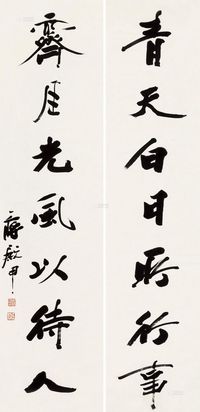 青天白日所行事
霽月光風以待人